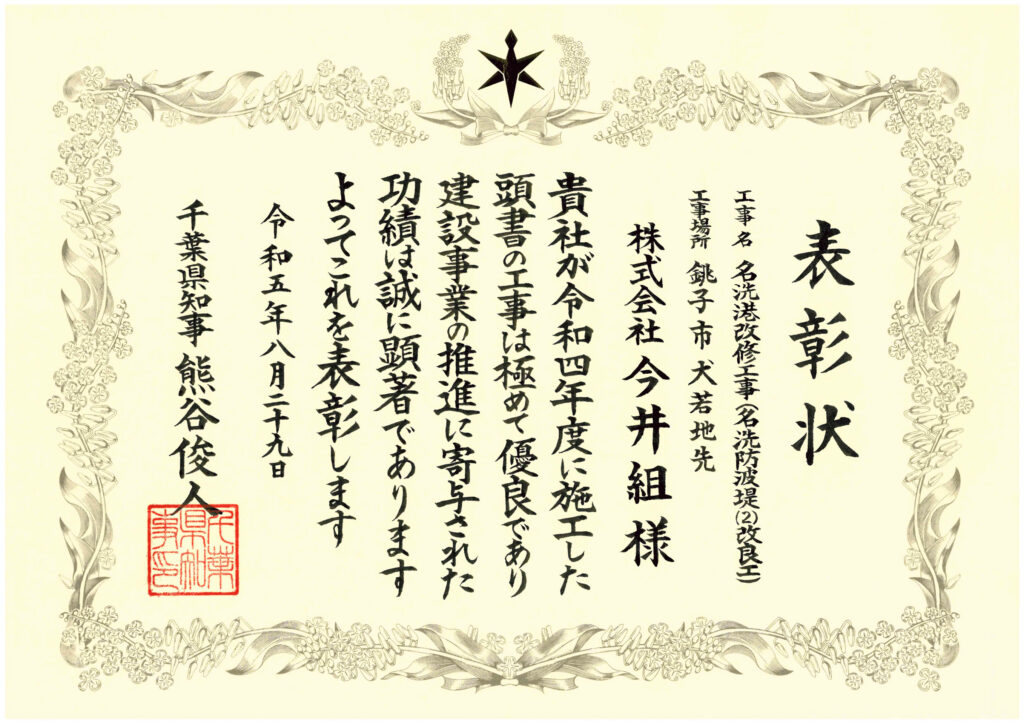 表彰状
工事名 名洗港改修工事(名洗防波堤(2)改良工)
工事場所 銚子市犬若地先
株式会社 今井組 様
貴社が令和四年度に施工した
頭書の工事は極めて優良であり
建設事業の推進に寄与された
功績は誠に顕著であります
よってこれを表彰します
令和五年八月二十九日
千葉県知事 熊谷俊人
千葉
県知
事印